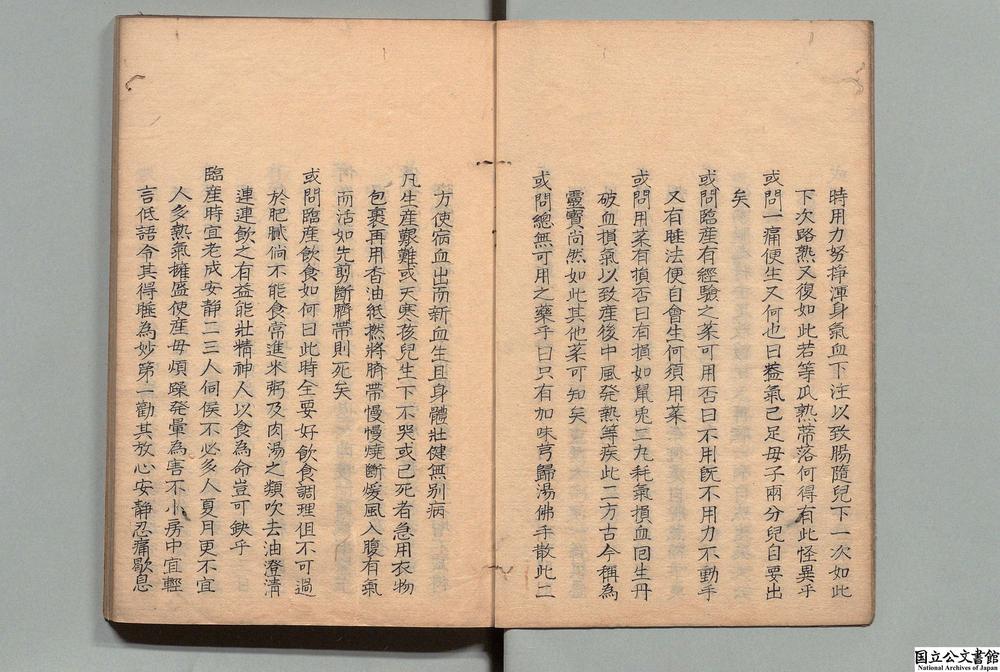 時用力努掙渾身氣血下注以致腸隨兒下一次如此
下次路熟又復如此若等瓜熟蒂落何得有此怪異乎
或問一痛便生又何也曰蓋氣已足母子兩分兒自要出
矣
或問臨産有經驗之菜可用否曰不用旣不用力不動手
又有睡法便自會生何須用菜
或問用菜有損否曰有損如鼠兎二丸耗氣損血回生丹
破血損氣以致産後中風発熱等疾此二方古今稱為
靈寶尚然如此其他菜可知矣
或問總無可用之藥乎曰只有加味芎歸湯佛手散此二
方使病血出而新血生且身體壯健無别病
凡生産艱難或天寒孩兒生下不哭或已死者急用衣物
包裹再用香油紙撚將臍帶慢慢燒斷煖風入腹有氣
而活如先剪斷臍帶則死矣
或問臨産飲食如何曰此時全要好飲食調理但不可過
於肥膩倘不能食常進米粥及肉湯之類吹去油澄清
連連飲之有益能壯精神人以食為命豈可缺乎
臨産時宜老成安靜二三人伺侯不必多人夏月更不宜
人多熱氣擁盛使産毋煩躁発暈為害不小房中宜輕
言低語令其得睡為妙第一勸其放心安靜忍痛歇息
国立公文書館
National Archives of Japan